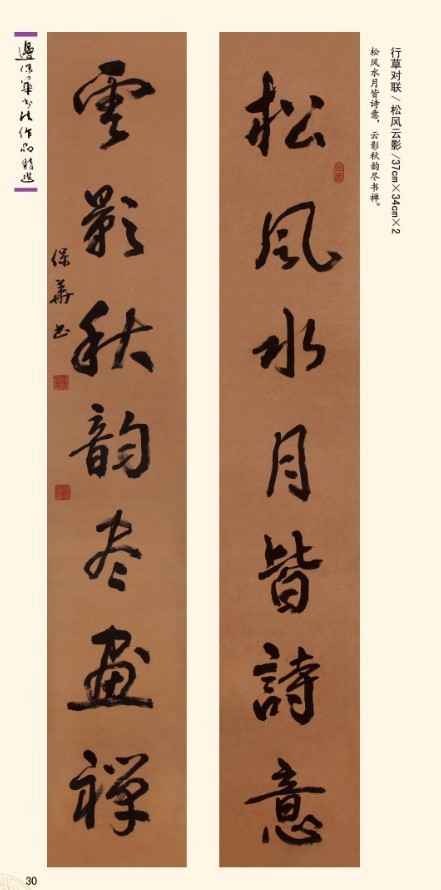 行草对联/松风云影/37cm×34cm×2
松风水月皆诗意，云影秋韵尽书禅。
松風水月皆詩意
雲影秋韵尽畫禪
保華书
邊保華书法作品精選
30